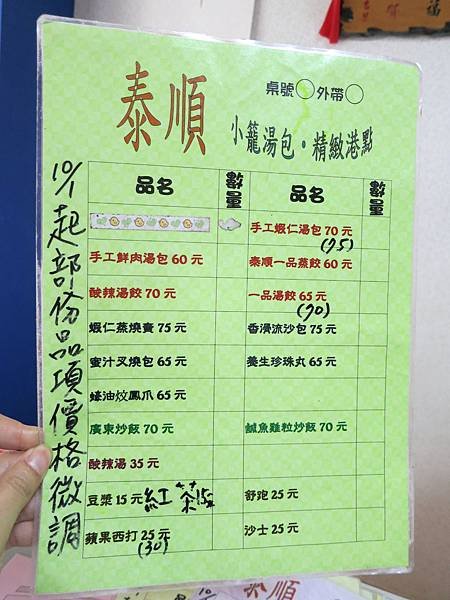 福
泰順
桌號 外帶
小籠湯包·精緻港點
10/1起部份品項價格微調
品名 數量 品名 數量
手工蝦仁湯包 70 元
(75)
手工鮮肉湯包 60 元 泰順一品蒸餃 60 元
酸辣湯餃 70 元 一品湯餃 65 元
(70)
蝦仁蒸燒賣 75 元 香滑流沙包 75 元
蜜汁叉燒包 65 元 養生珍珠丸 65 元
蠔油炆鳳爪 65 元
廣東炒飯 70 元 鹹魚雞粒炒飯 70 元
酸辣湯 35 元
豆漿 15 元 紅茶15元 舒跑 25 元
蘋果西打 25 元 沙士 25 元
(30)
泰順